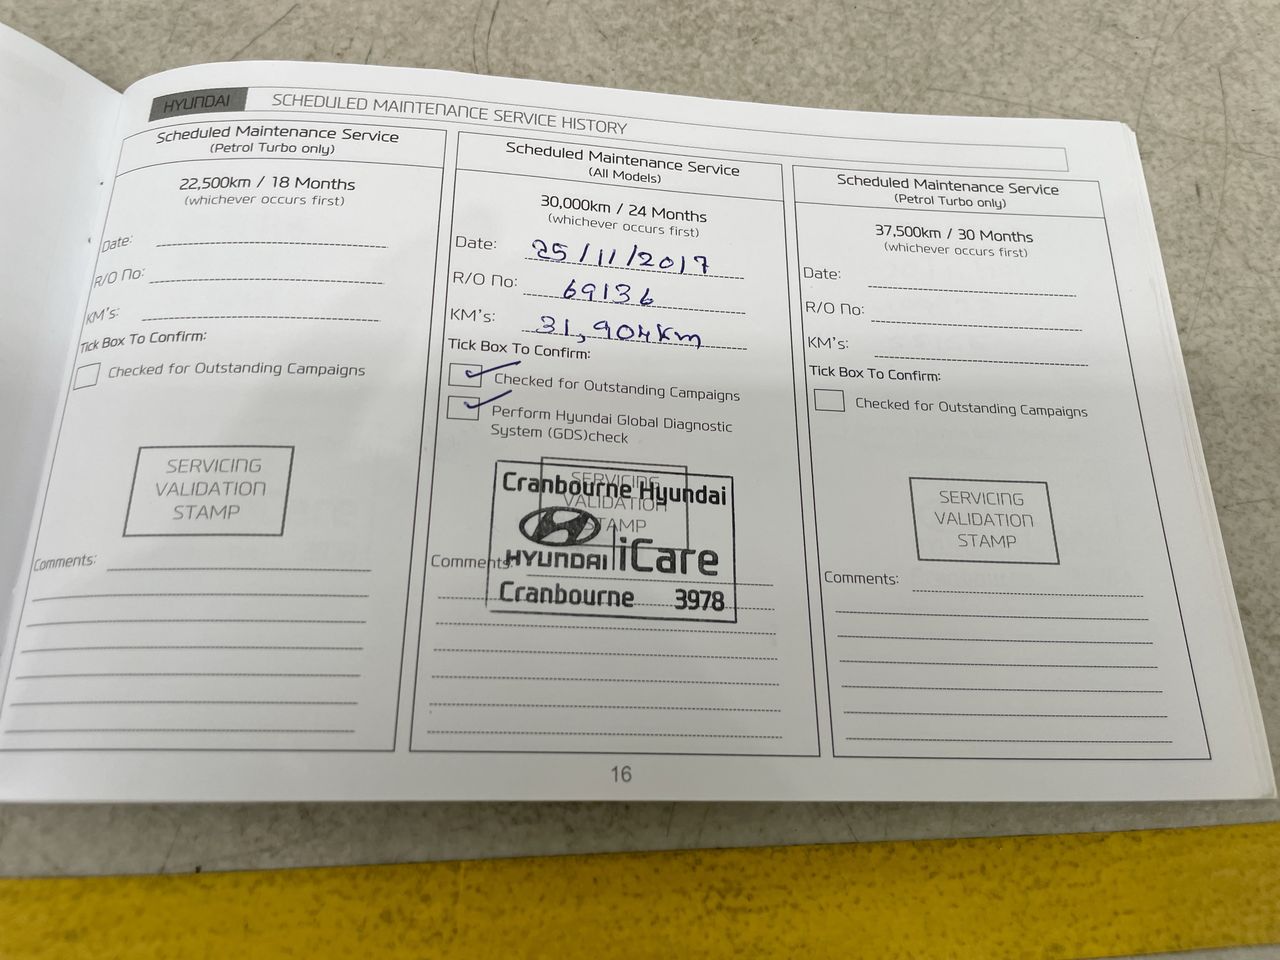 HYUNDAI
SCHEDULED MAINTENANCE SERVICE HISTORY
Scheduled Maintenance Service
(Petrol Turbo only)
22,500km / 18 Months
(whichever occurs first)
Date:
R/O No:
KM's:
Tick Box To Confirm:
Checked for Outstanding Campaigns
SERVICING
VALIDATION
STAMP
Comments:
Scheduled Maintenance Service
(All Models)
30,000km / 24 Months
(whichever occurs first)
Date: 25/11/2017
R/O No: 69136
KM's: 31,904km
Tick Box To Confirm:
Checked for Outstanding Campaigns
Perform Hyundai Global Diagnostic
System (GDS)check
SERVICING
VALIDATION
STAMP
Cranbourne Hyundai
HYUNDAI iCare
Cranbourne 3978
Comments:
Scheduled Maintenance Service
(Petrol Turbo only)
37,500km / 30 Months
(whichever occurs first)
Date:
R/O No:
KM's:
Tick Box To Confirm:
Checked for Outstanding Campaigns
SERVICING
VALIDATION
STAMP
Comments:
16